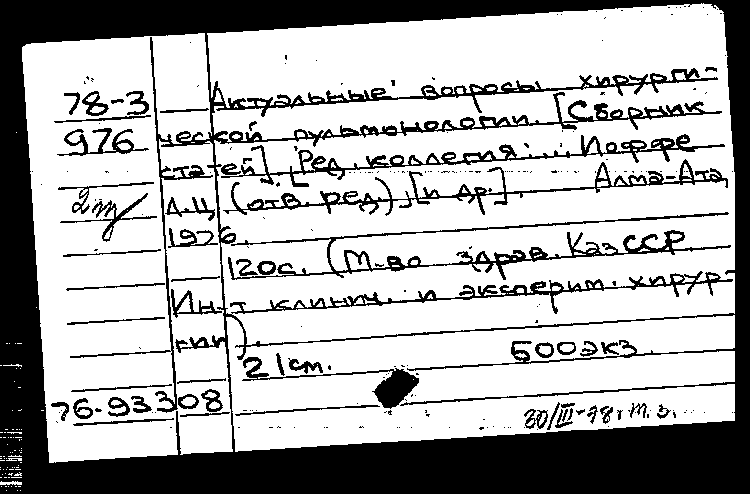 78-3 Актуальные вопросы хирурги-
976 ческой пульмонологии. [Сборник
статей]. [Ред. коллегия: ... Иоффе
2 Л.Ц. (отв. ред), [и др]. Алма-Ата,
1976.
120с. (М-во здрав. КазССР.
Ин-т клинич. и эксперим. хирур-
гии).
21см. 500экз.
76-93308
30/III-78г.